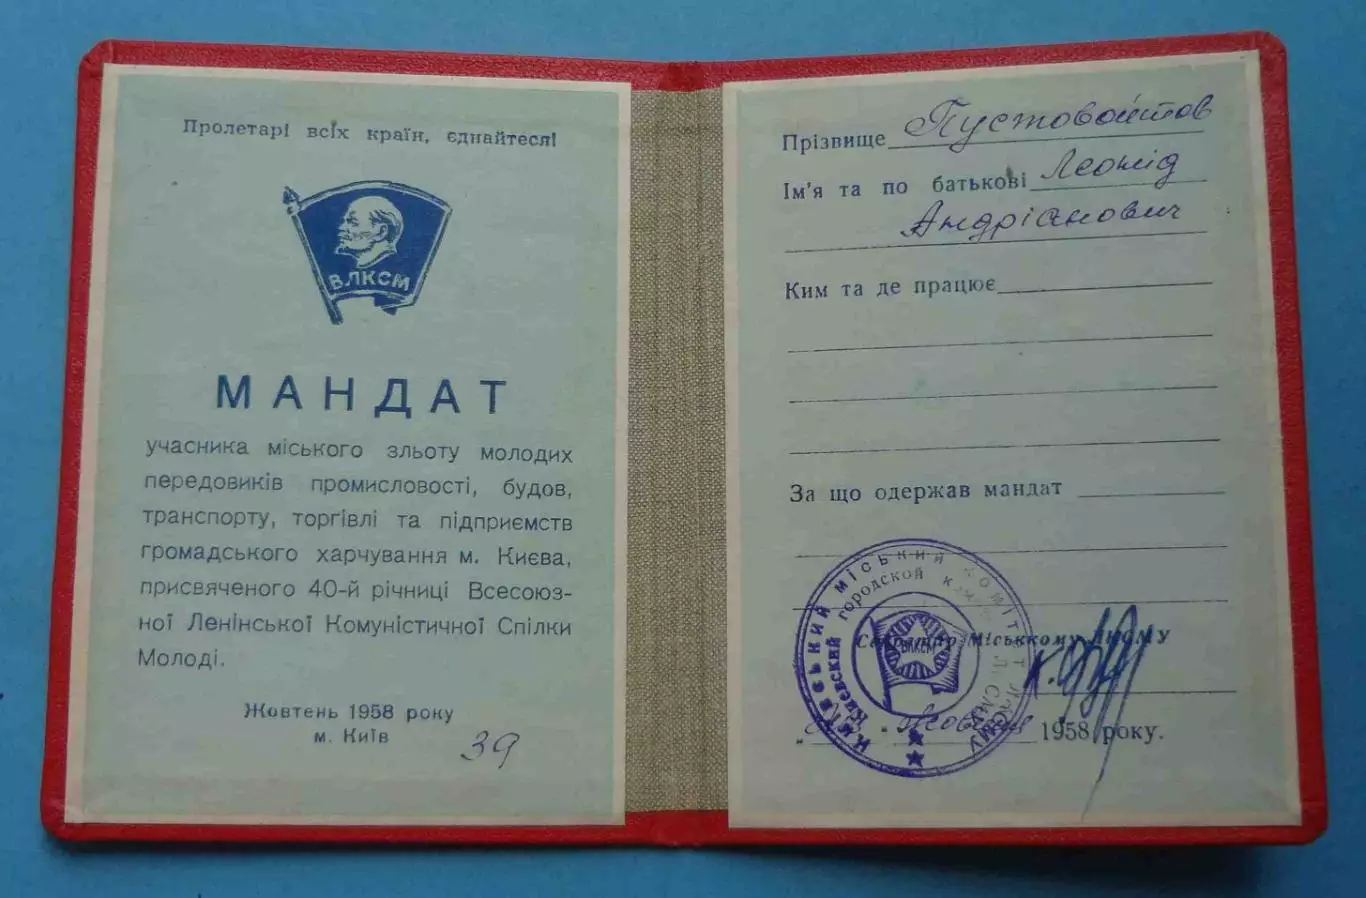 Пролетарі всіх країн, єднайтеся!
ВЛКСМ
МАНДАТ
учасника міського зльоту молодих
передовиків промисловості, будов,
транспорту, торгівлі та підприємств
громадського харчування м. Києва,
присвяченого 40-й річниці Всесоюз-
ної Ленінської Комуністичної Спілки
Молоді.
Жовтень 1958 року
м. Київ
39
Прізвище Пустовойтов
Ім'я та по батькові Леонід
Андріанович
Ким та де працює
За що одержав мандат
Київський міський комітет ЛКСМУ
Киевский городской комитет ЛКСМУ
ВЛКСМ
Секретар Міськкому ЛКСМУ
" " Жовтня 1958 року.